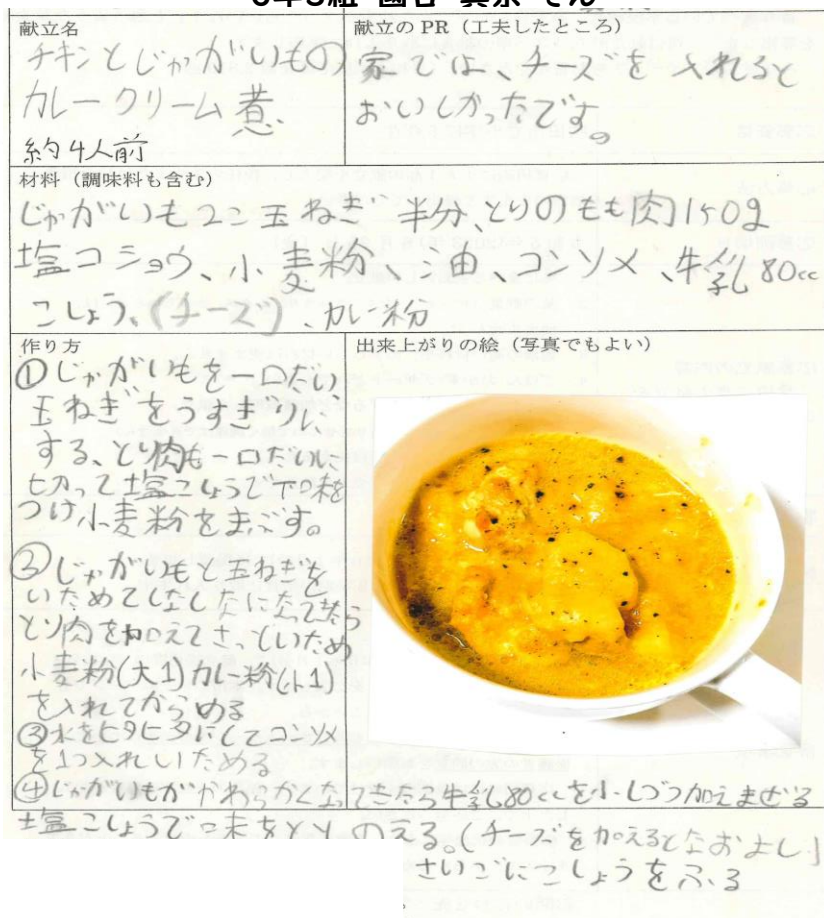 献立名
チキンとじゃがいもの
カレークリーム煮
約4人前
献立の PR(工夫したところ)
家では、チーズを入れると
おいしかったです。
材料(調味料も含む)
じゃがいも2コ玉ねぎ 半分、とりのもも肉150g
塩コショウ、小麦粉、油、コンソメ、牛乳80cc
こしょう、(チーズ)、カレー粉
作り方
①じゃがいもを一口だい
玉ねぎをうすぎりに、
する、とり肉も一口だいに
切って塩こしょうで下味を
つけ小麦粉をまぶす。
②じゃがいもと玉ねぎを
いためてしなしなになてきたら
とり肉を加えてさっといため
小麦粉(大1)カレー粉(小1)
を入れてからめる
③水をヒタヒタにしてコンソメ
を1つ入れいためる
④じゃがいもがやわらかくなってきたら牛乳80ccを少しづつ加えまぜる
塩こしょうで味をととのえる。(チーズを加えるとなおよし)
さいごにこしょうをふる
出来上がりの絵(写真でもよい)